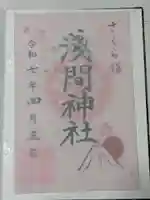 さくら編
浅間神社
令和七年四月五日